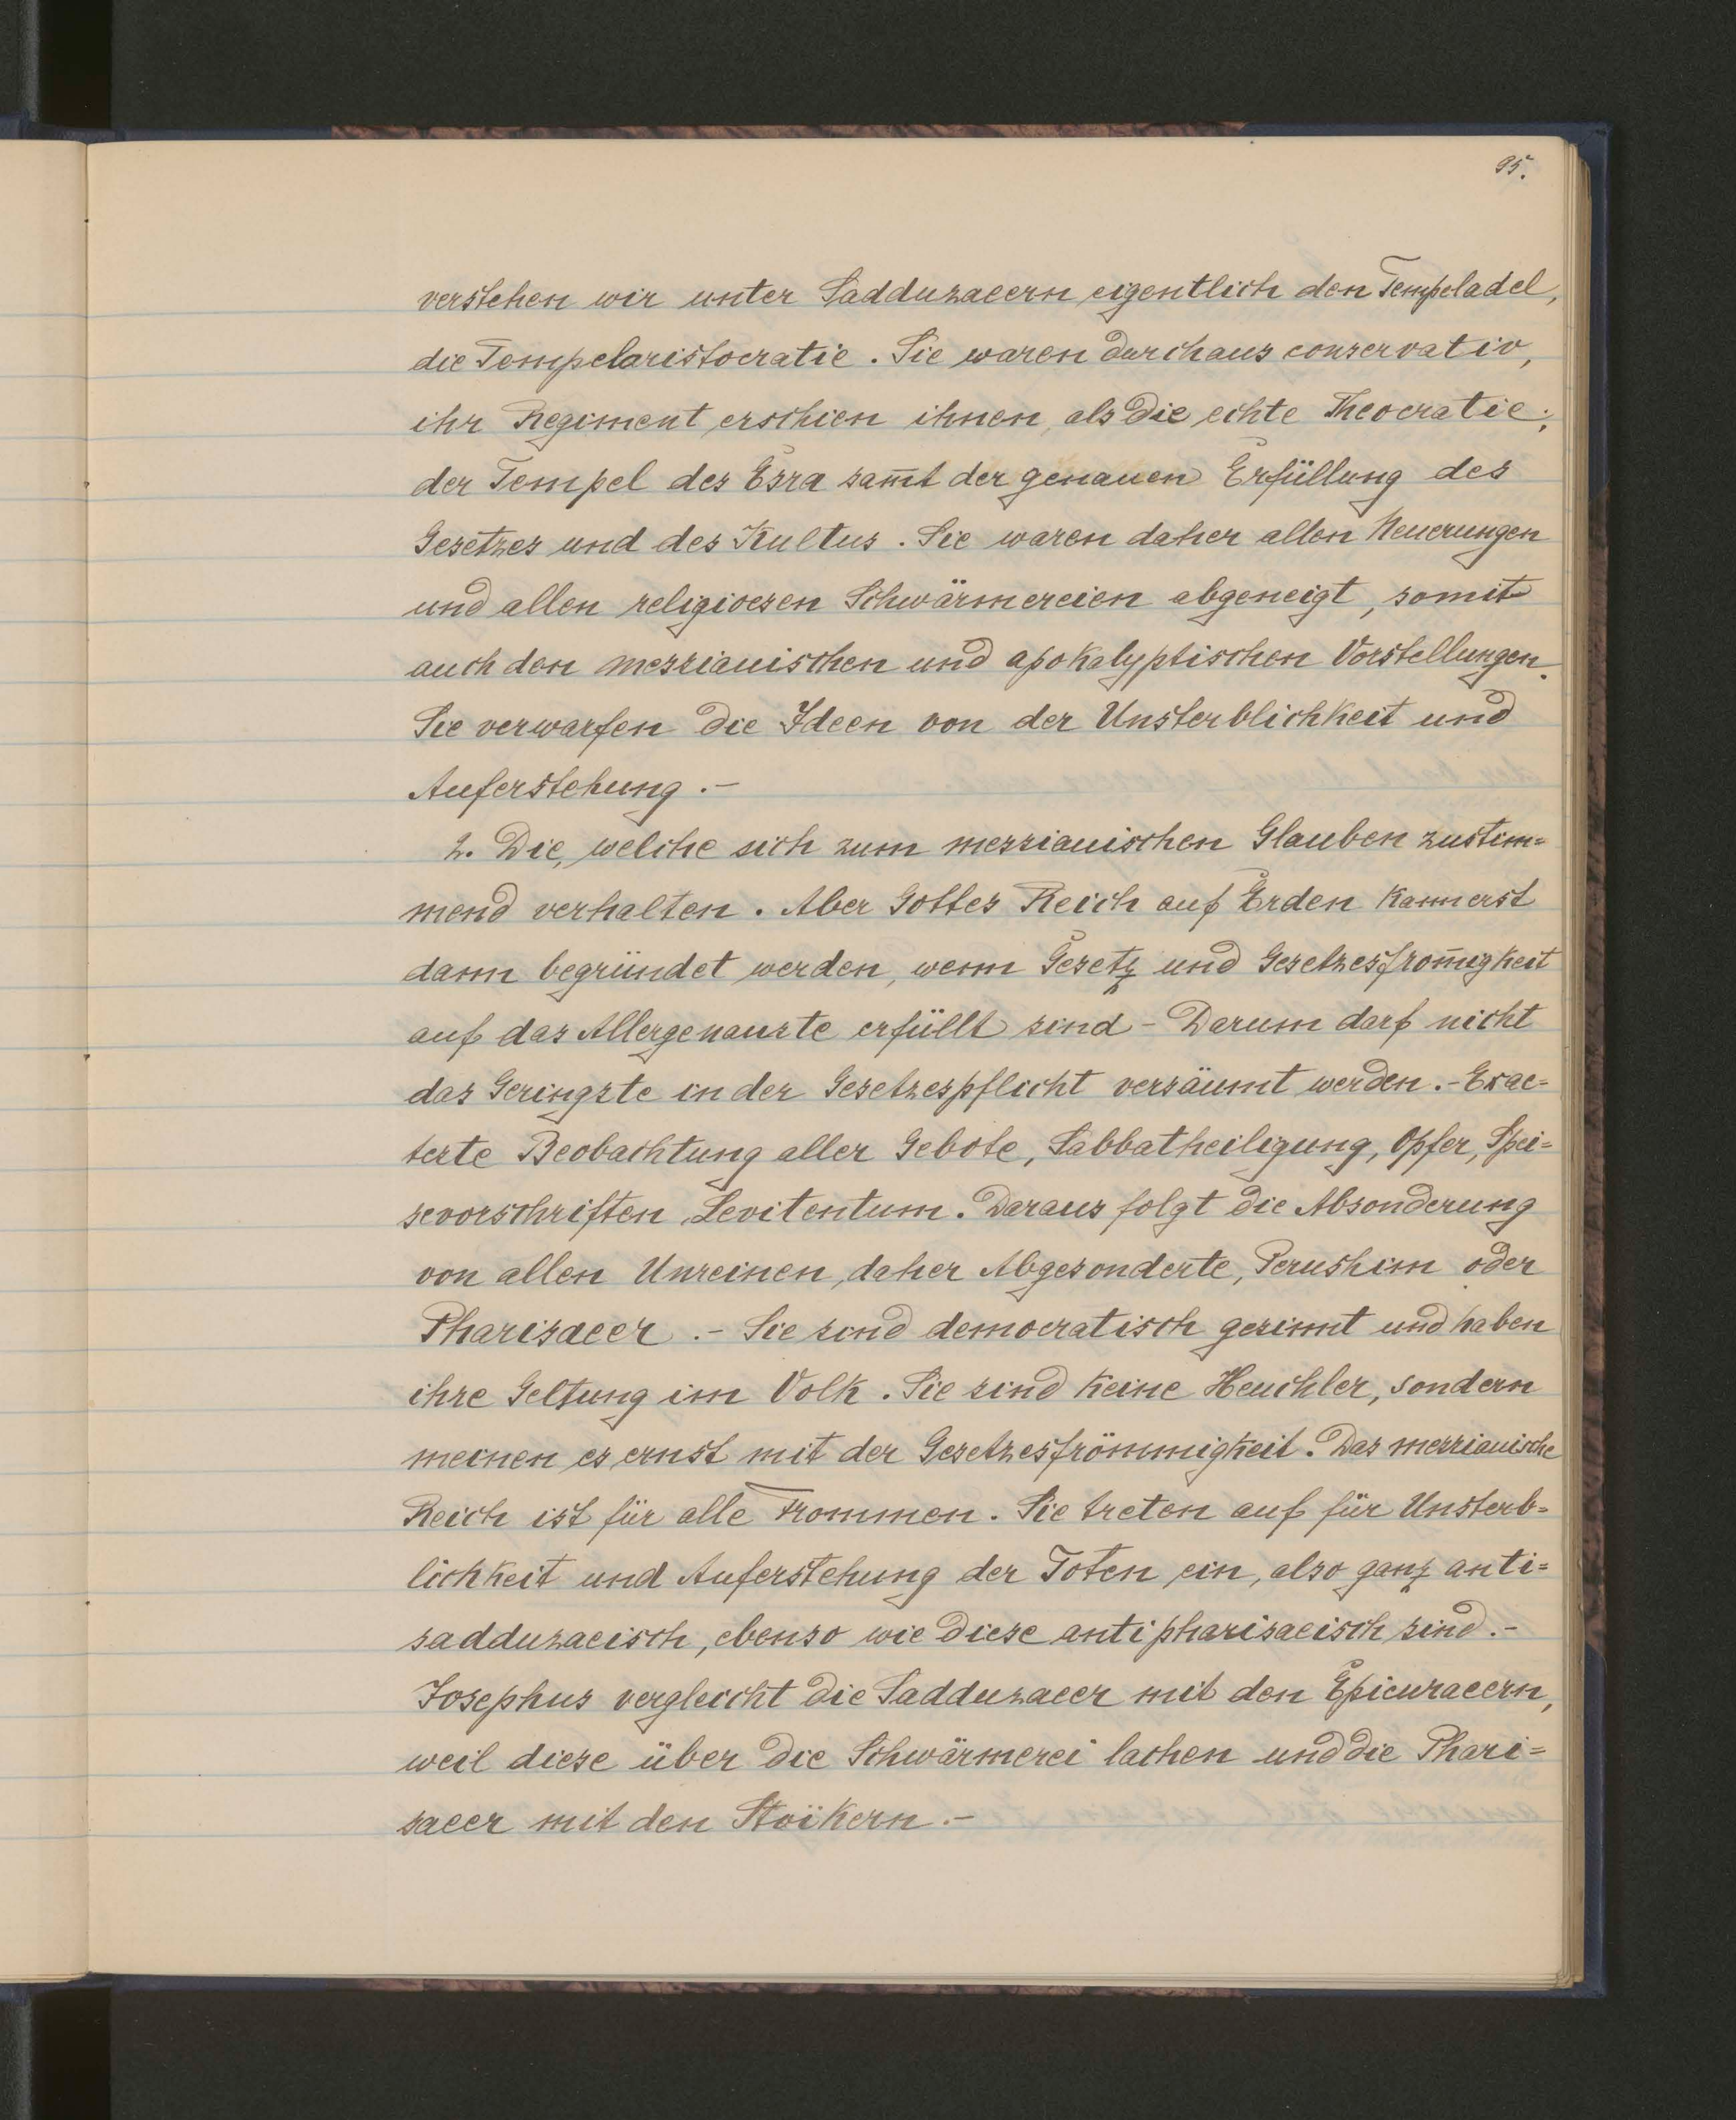 95.
verstehen wir unter Sadduzaeern eigentlich den Tempeladel,
die Tempelaristocratie. Sie waren durchaus conservativ,
ihr Regiment erschien ihnen als die echte Theocratie;
der Tempel des Esra sam̄t der genauen Erfüllung des
Gesetzes und des Kultus. Sie waren daher allen Neuerungen
und allen religioesen Schwärmereien abgeneigt, somit
auch den messianischen und apokalyptischen Vorstellungen.
Sie verwarfen die Ideen von der Unsterblichkeit und
Auferstehung.-
2. Die, welche sich zum messianischen Glauben zustim=
mend verhalten. Aber Gottes Reich auf Erden kann erst
dann begründet werden, wenn Gesetz und Gesetzesfrom̄igkeit
auf das Allergenauste erfüllt sind - Darum darf nicht
das Geringste in der Gesetzespflicht versäumt werden.- Exac=
teste Beobachtung aller Gebote, Sabbatheiligung, Opfer, Spei=
sevorschriften, Levitentum. Daraus folgt die Absonderung
von allen Unreinen, daher Abgesonderte, Perushim oder
Pharisaeer.- Sie sind democratisch gesinnt und haben
ihre Geltung im Volk. Sie sind keine Heuchler, sondern
meinen es ernst mit der Gesetzesfrömmigkeit. Das messianische
Reich ist für alle Frommen. Sie treten auf für Unsterb=
lichkeit und Auferstehung der Toten ein, also ganz anti=
sadduzaeisch, ebenso wie diese antipharisaeisch sind.-
Josephus vergleicht die Sadduzaeer mit den Epicuraeern,
weil diese über die Schwärmerei lachen und die Phari=
saeer mit den Stoïkern.-